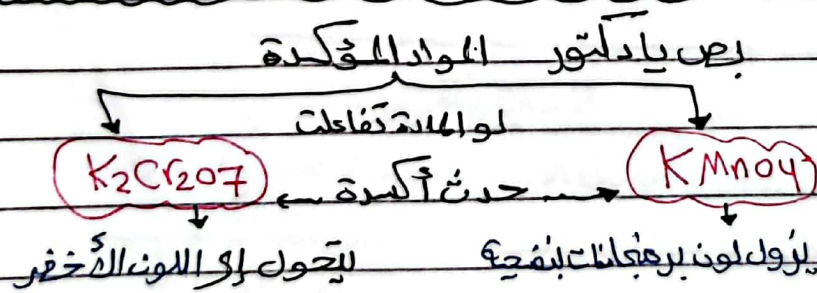 بص يا دكتور المواد المؤكسدة
لو المادة تفاعلت
KMnO4 ← حدث أكسدة → K2Cr2O7
يزول لون برمنجانات بنفسجية
يتحول إلى اللون الأخضر